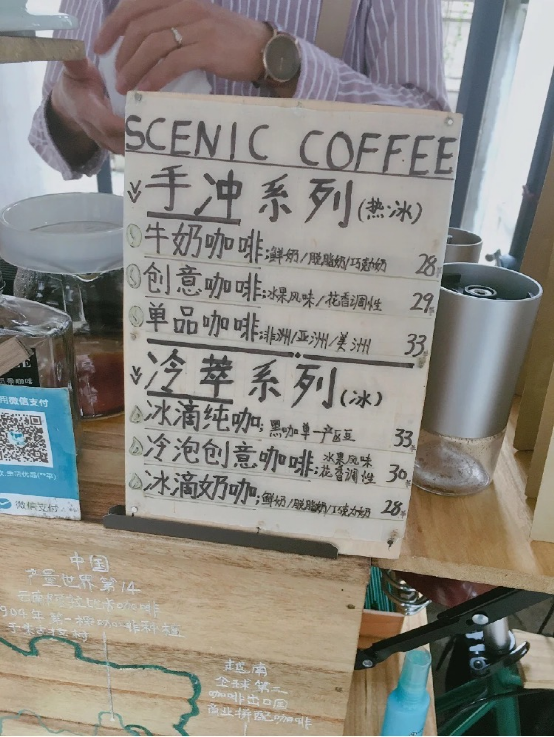 SCENIC COFFEE
手冲系列(热冰)
牛奶咖啡:鲜奶/脱脂奶/巧克力奶 28
创意咖啡:冰果风味/花香调性 29
单品咖啡:非洲/亚洲/美洲 33
冷萃系列(冰)
冰滴纯咖:黑咖单一产区豆 33
冷泡创意咖啡:冰果风味 花香调性 30
冰滴奶咖:鲜奶/脱脂奶/巧克力奶 28
用微信支付
微信支付
中国
产量世界第14
越南
全球第二
咖啡出口国
商业拼配咖啡